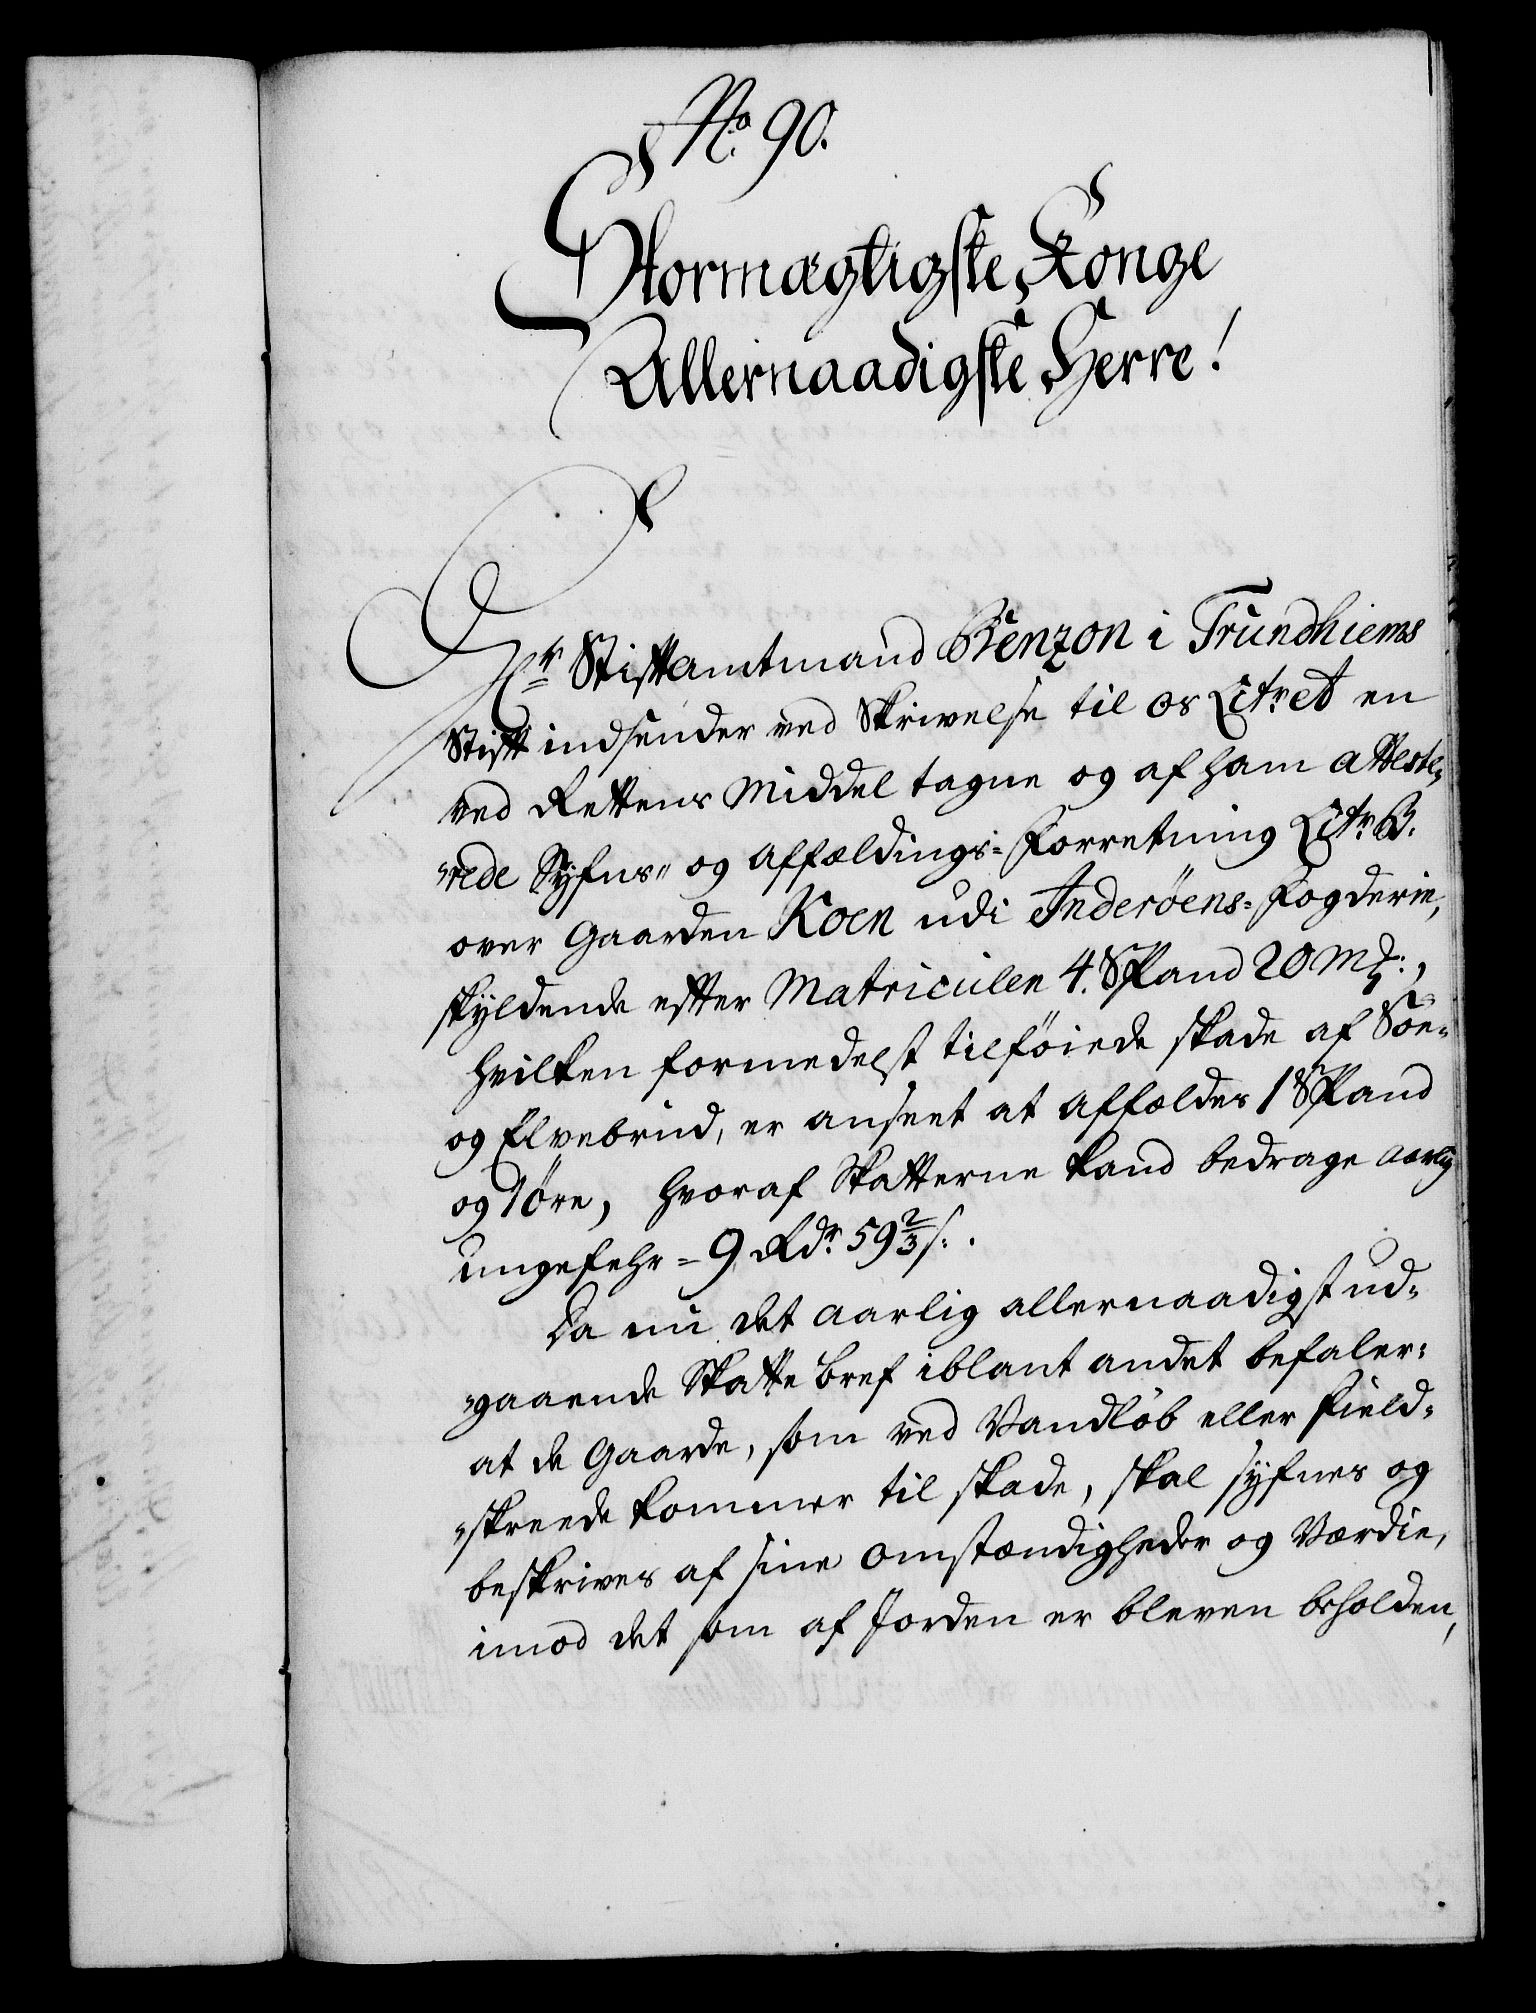 No. 90.
Stormægtigste Konge
Allernaadigste Herre!
Hr. Stiftamtmand Benzon i Trundhiems
Stift indsender ved Skrivelse til os Litr. A en
ved Rettens Middel tagne og af ham atteste„
„rede Syfns„ og Affældings=Forretning Litr. B.
over Gaarden Koen udi Inderöens=Fogderie,
skyldende efter Matriculen 4. Spand 20 Mk:,
hvilken formedelst tilföiede skade af Söe=
og Elvebrud, er anseet at affældes 1 Spand
og 1 öre, hvoraf Skatterne kand bedrage aarlig
ungefehr = 9 Rdr. 59 2/3 s:.
Da nu det aarlig allernaadigst ud=
„gaaende Skatte bref iblant andet befaler:
at de Gaarde, som ved Vandlöb eller Field=
„skreede kommer til skade, skal syfnes og
beskrives af sine omstændigheder og Værdie,
imod det som af Jorden er bleven beholden,